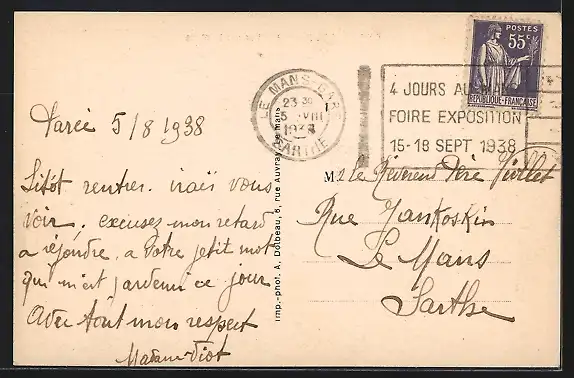 Parcé 5/8 1938
Sitôt rentrer. irais vous
voir. excusez mon retard
a rejondre, a Votre petit mot
qui m'est parvenu ce jour
Avec tout mon respect
Madame Viot
Imp.-phot. A. Dolbeau, 8, rue Auvray, Le Mans
LE MANS-GARE
23 30
5 VIII
1938
SARTHE
4 JOURS AU MANS
FOIRE EXPOSITION
15-18 SEPT 1938
POSTES
55c
REPUBLIQUE-FRANÇAISE
M
le Réverend Père Piollet
Rue Jankoskin
Le Mans
Sarthe